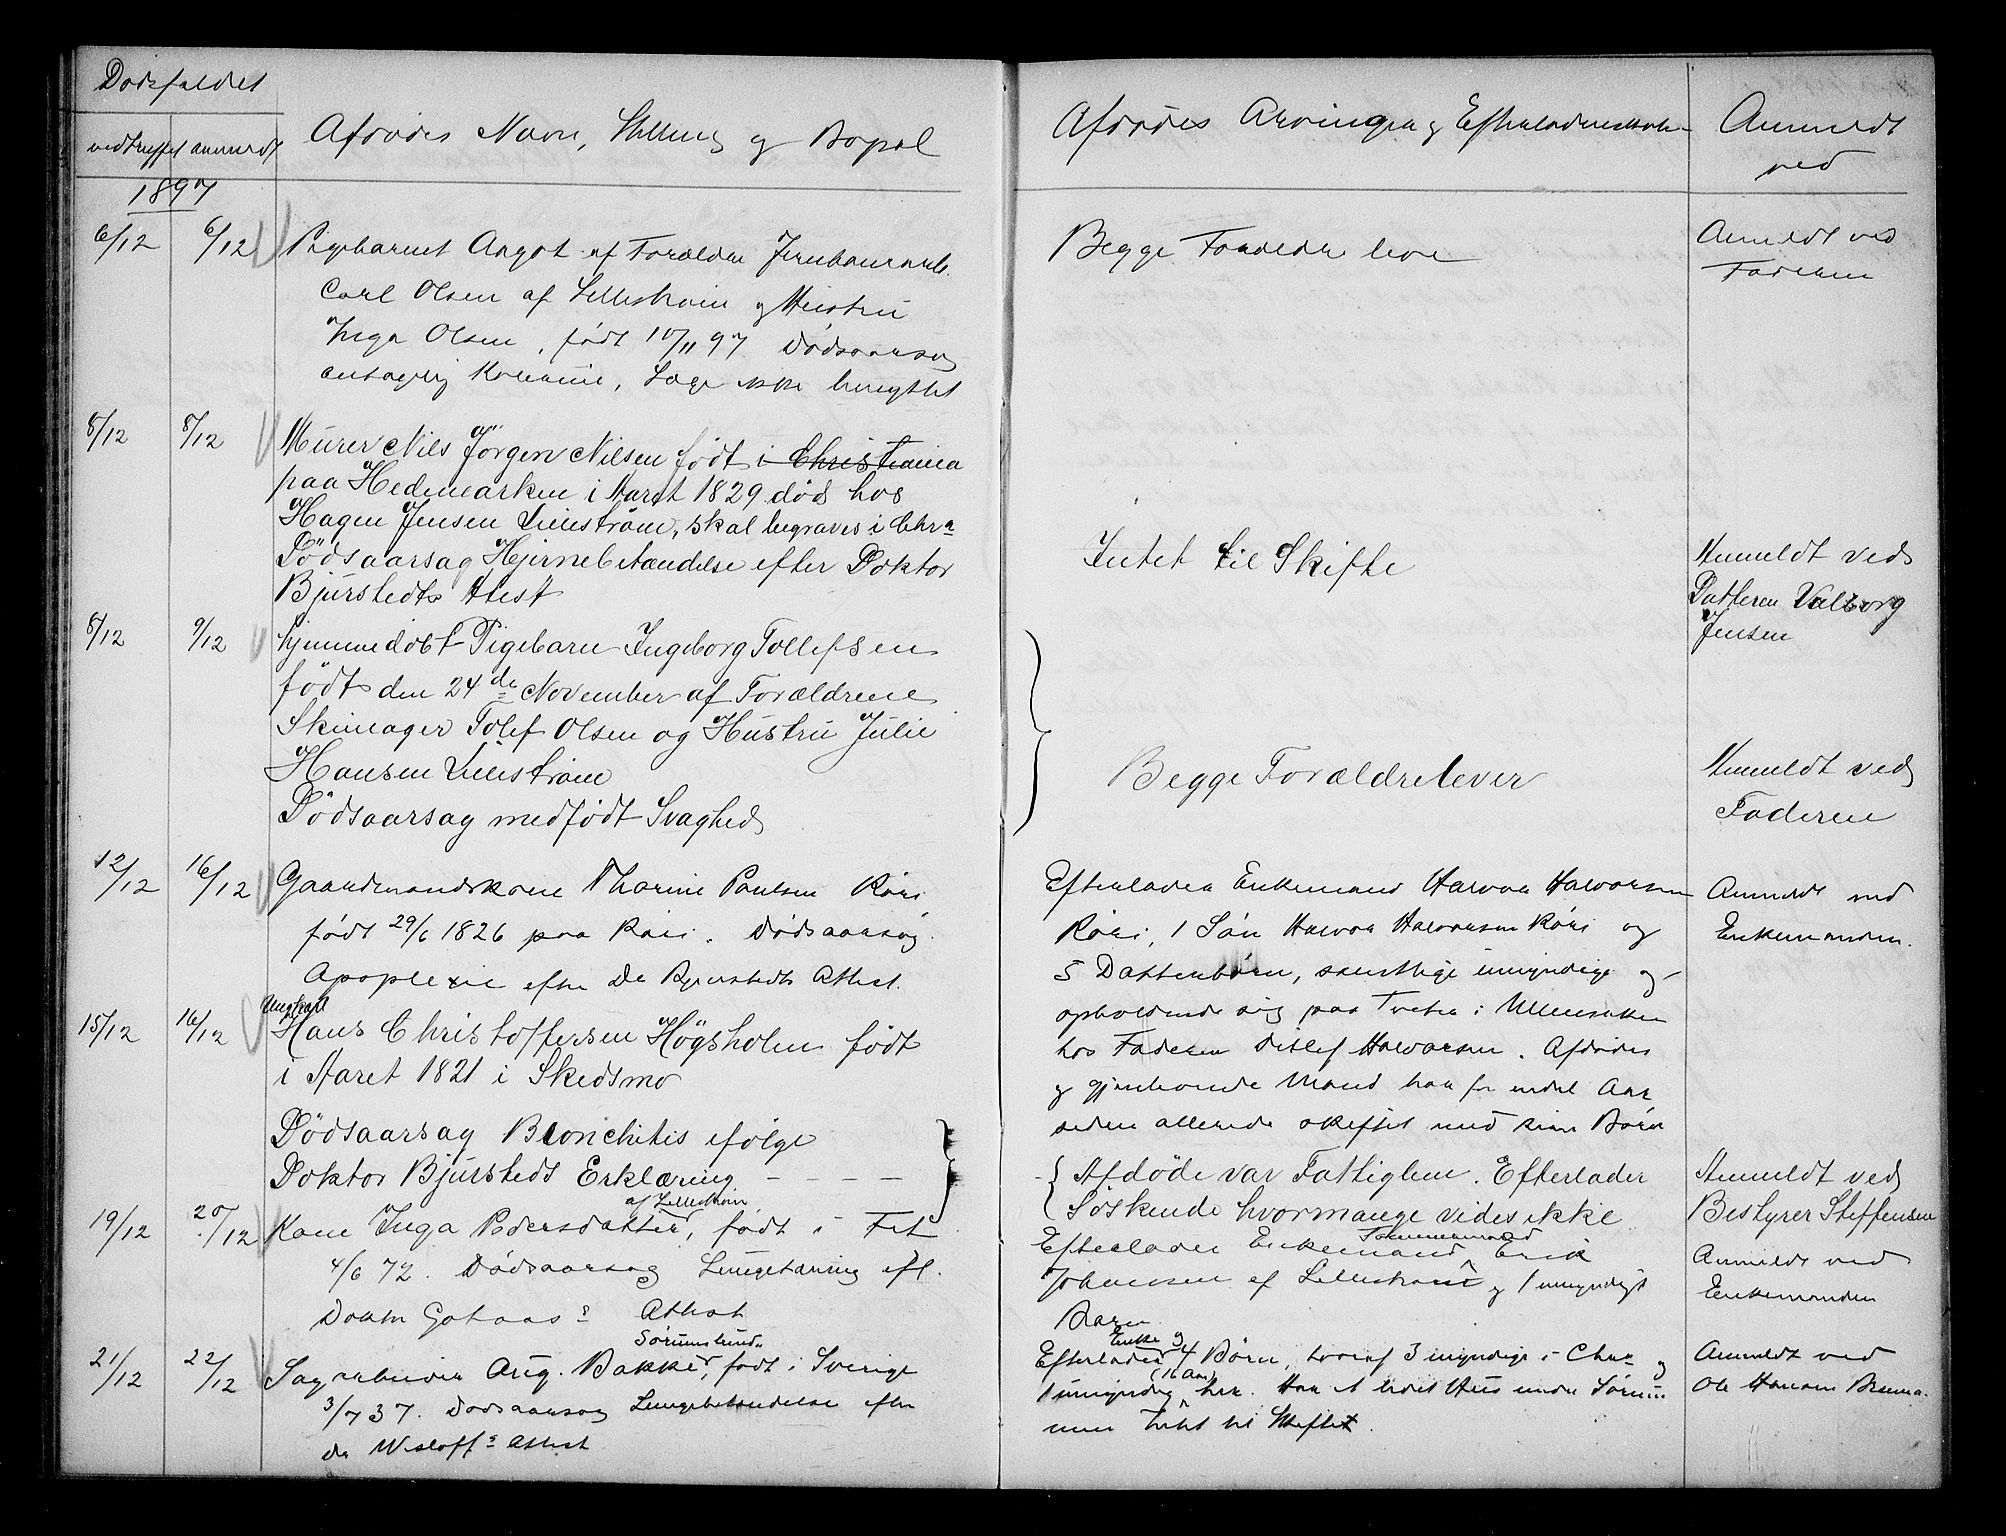 Dødsfaldet
indtruffet anmeldt
Afdødes Navn, Stilling og Bopæl
1897
6/12 6/12 Pigebarnet Aagot af Forældre
Carl Olsen af Lillestrøm og Hustru
Inga Olsen, født 10/11 97 Dødsaarsag
antagelig Kolerine, Læge ikke benyttet
8/12 8/12 Murer Nils Jörgen Nilsen født i Christiania
paa Hedemarken i Aaret 1829 död hos
Hagen Jensen Lilleström, skal begraves i Chra
Dödsaarsag Hjernebetændelse efter Doktor
Bjurstedts Attest
8/12 9/12 hjemmedöbt Pigebarn Ingeborg Tollefsen
födt den 24de November af Forældrene
Skomager Tolef Olsen og Hustru Julie
Hansen Lilleström
Dödsaarsag medfödt Svaghed
12/12 16/12 Gaardmandskone Thorine Paulsen
født 29/6 1826 paa . Dødsaarsag
Apoplexie efter Dr Bjurstedts Attest.
15/12 16/12 Ungkarl
Hans Christoffersen Högsholen födt
i Aaret 1821 i Skedsmo
Dödsaarsag Bronchitis efölge
Doktor Bjursteds Erklæring - - - -
af Lillestrøm
19/12 20/12 Kone Inga Pedersdatter, født i Fet
4/6 72. Dødsaarsag Lungetæring efl.
Doktor Gotaas's Attest
Sørumsund
21/12 22/12 Sagarbeider Aug. Bakke, født i Sverige
3/7 37. Dødsaarsag Lungebetændelse efter
dr Wisløff's Attest
Afdødes Arvinger og
Anmeldt
ved
Begge Forældre leve
Anmeldt ved
Faderen
Intet til Skifte
Anmeldt ved
Datteren Valborg
Jensen
Begge Forældre lever
Anmeldt ved
Faderen
Efterlader Enkemand Halvor Halvorsen
1 Søn Halvor Halvorsen og
5 Datterbørn, samtlige umyndige og
opholdende sig paa i Ullensaker
hos Faderen Ditlef Halvorsen. Afdødes
og gjenlevende Mand har for endel Aar
siden allerede skiftet med sine Børn
Anmeldt ved
Enkemanden.
Afdöde var Fattiglem. Efterlader
Söskende hvormange vides ikke
Anmeldt ved
Bestyrer Steffensen
Tømmermand
Efterlader Enkemand Erik
Johansen af Lillestrøm og 1 umyndigt
Barn
Anmeldt ved
Enkemanden
Enke og
Efterlader 4 Børn, hvoraf 3 myndige i Chra og
(16 Aar)
1 umyndig her. Har et lidet Hus under
Intet til Skifte.
Anmeldt ved
Ole Hansen